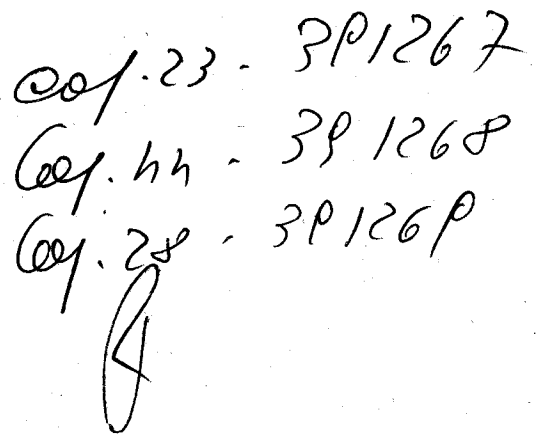 Coy. 23 - 391267
Coy. 44 - 391268
Coy. 28 - 391269